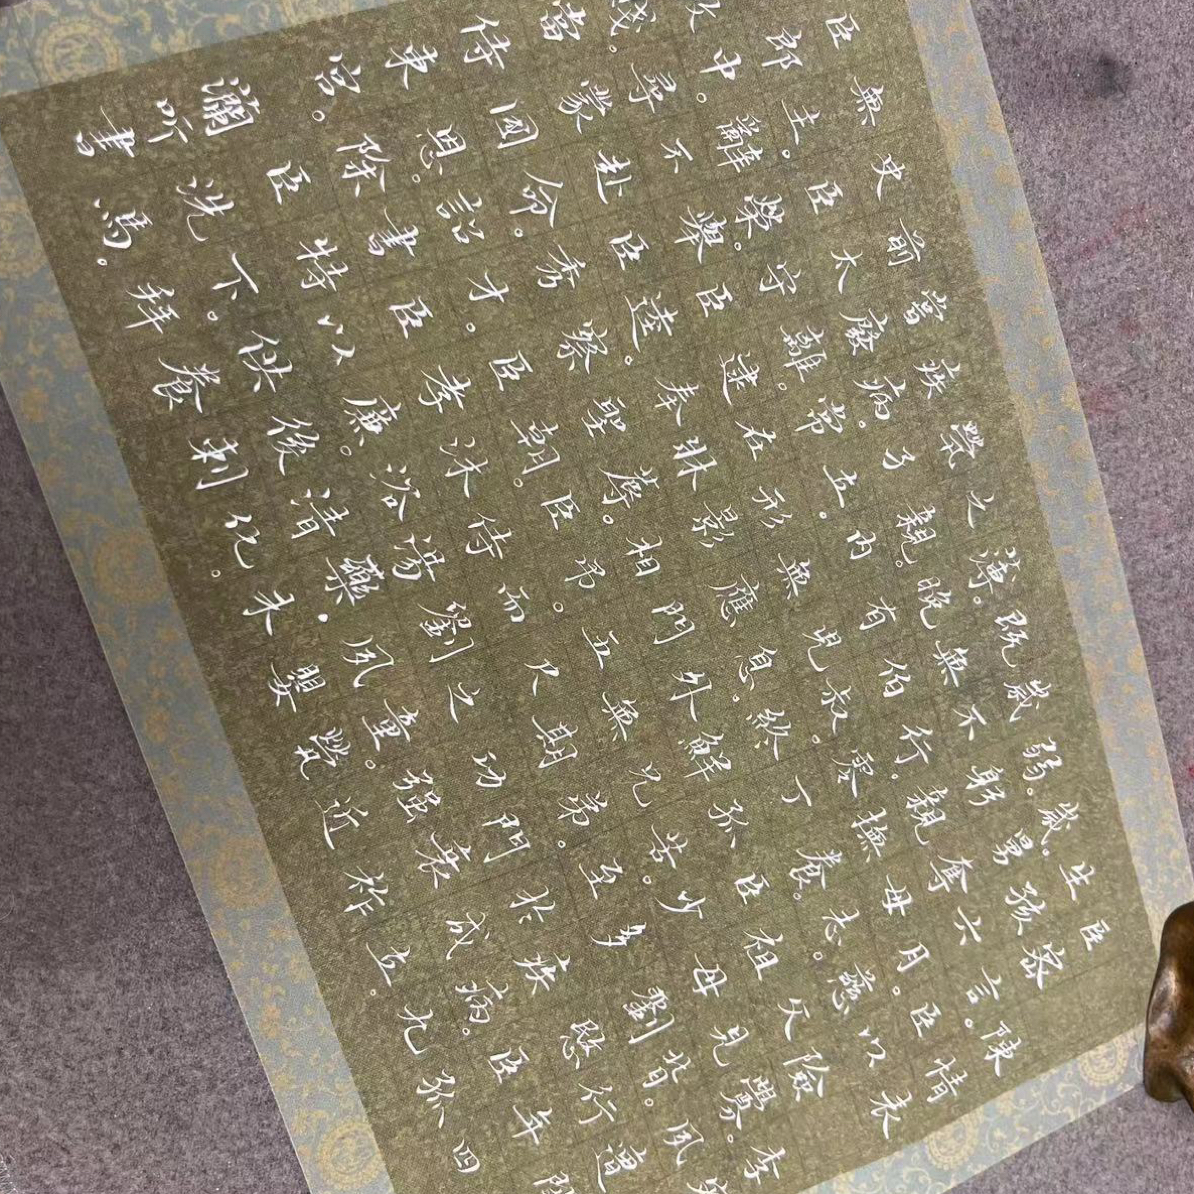 陳情表 李密
臣密言。臣以險釁。夙遭閔
生孩六月。慈父見背。行年四
歲。舅奪母志。祖母劉愍臣孤
弱。躬親撫養。臣少多疾病。九
歲不行。零丁孤苦。至於成立。
既無伯叔。終鮮兄弟。門衰祚
薄。晚有兒息。外無期功強近
之親。內無應門五尺之童。煢
煢孑立。形影相弔。而劉夙嬰
疾病。常在牀蓐。臣侍湯藥。未
嘗廢離。逮奉聖朝。沐浴清化。
前太守臣逵。察臣孝廉。後刺
史臣榮。舉臣秀才。臣以供養
無主。辭不赴命。詔書特下。拜
臣郎中。尋蒙國恩。除臣洗馬。
賤。當侍東宮。瀾听書